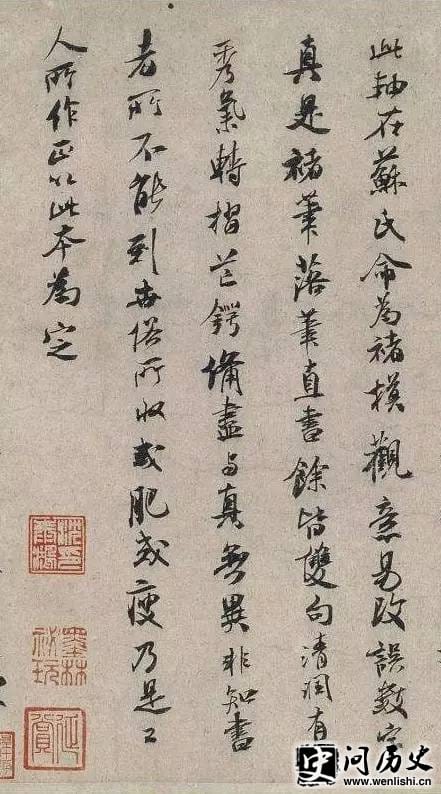 此軸在蘇氏命為褚摸觀意易改誤數字
真是褚筆落筆直書餘皆雙勾清潤有
秀氣轉摺芒鍔備盡與真無異非知書
者所不能到世俗所收或肥或瘦乃是工
人所作正以此本為定
墨林
祕玩
问历史
www.wenlishi.cn